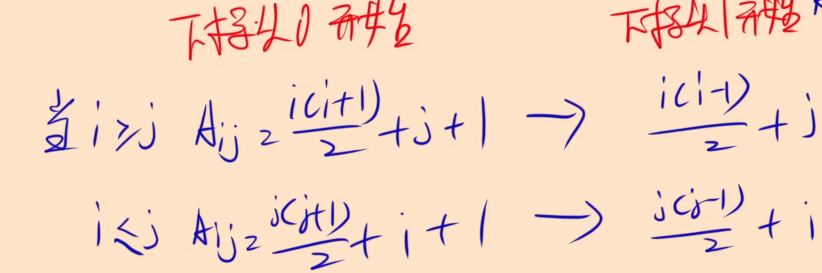 下标从0开始 下标从1开始
当 i≥j A_{ij} = \frac{i(i+1)}{2} + j + 1 → \frac{i(i-1)}{2} + j
i≤j A_{ij} = \frac{j(j+1)}{2} + i + 1 → \frac{j(j-1)}{2} + i